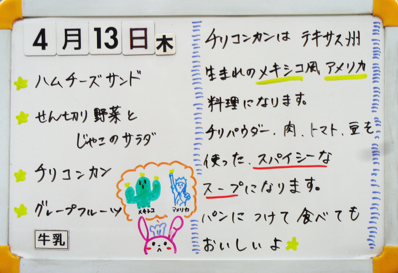 4月13日木
ハムチーズサンド
せん切り野菜と
じゃこのサラダ
チリコンカン
グレープフルーツ
牛乳
メキシコ
アメリカ
チリコンカンは テキサス州
生まれのメキシコ風 アメリカ
料理になります。
チリパウダー、肉、トマト、豆を
使った、スパイシーな
スープになります。
パンにつけて食べても
おいしいよ